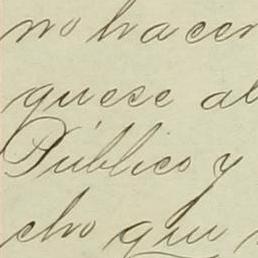 no hacer
quese al
Público y
cho que